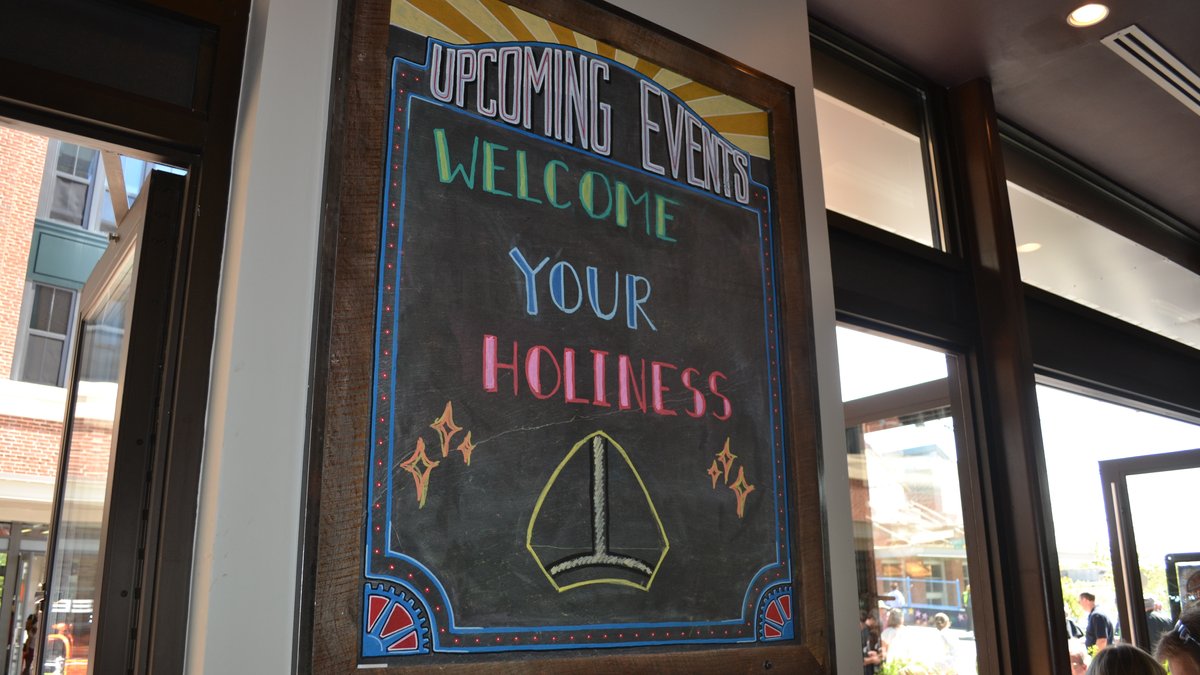 UPCOMING EVENTS
WELCOME
YOUR
HOLINESS